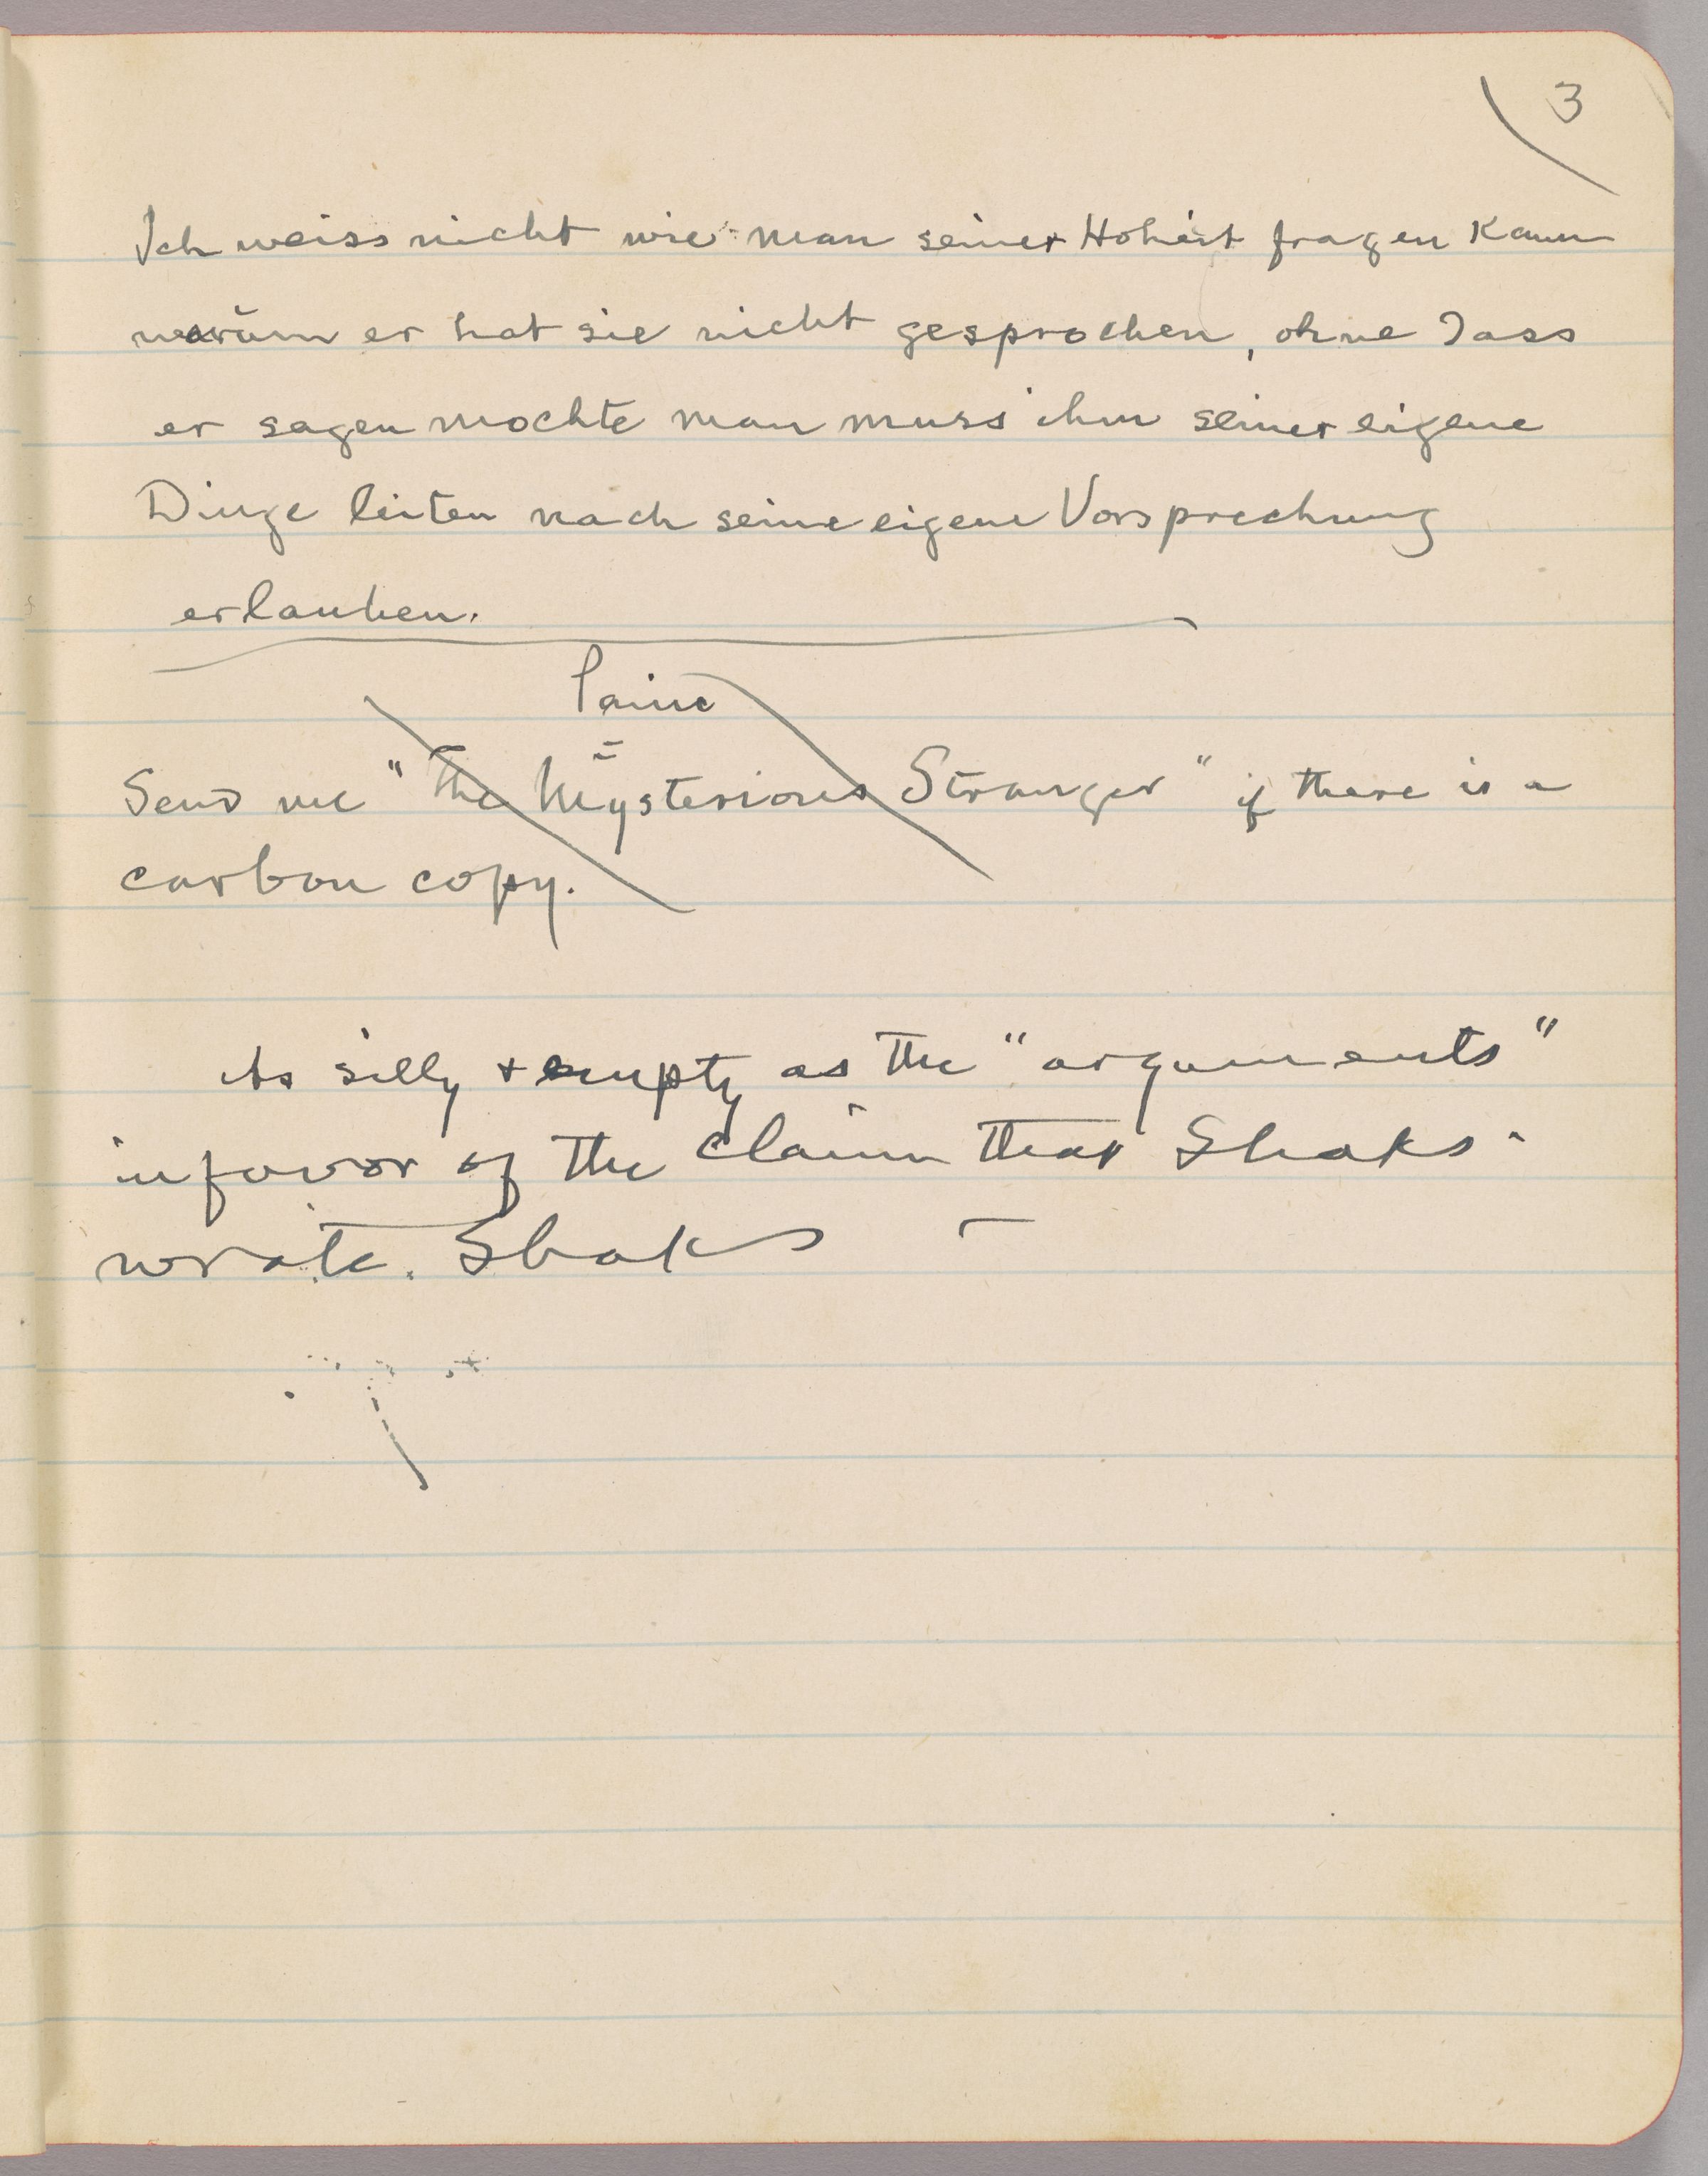 3
Ich weiss nicht wie man seiner Hoheit fragen kann
warŭm er hat sie nicht gesprochen, ohne dass
er sagen mochte man muss ihm seiner eigene
Dinge leiten nach seine eigene Vorsprechung
erlauben.
Paine
Send me "The Mysterious Stranger" if there is a
carbon copy.
As silly + empty as the "arguments"
in favor of the claim that Shaks.
wrote. Shaks —